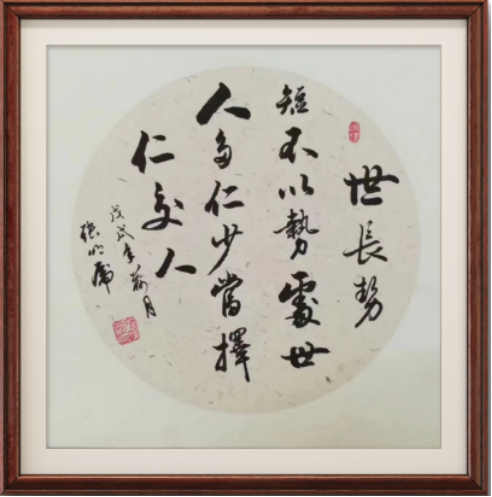 世長勢
短不以勢處世
人多仁少當擇
仁交人
戊戌年月
張